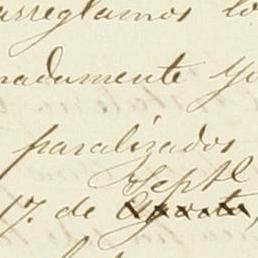 arreglamos lo
nadamente y
paralizados
Septe
17. de Agosto,